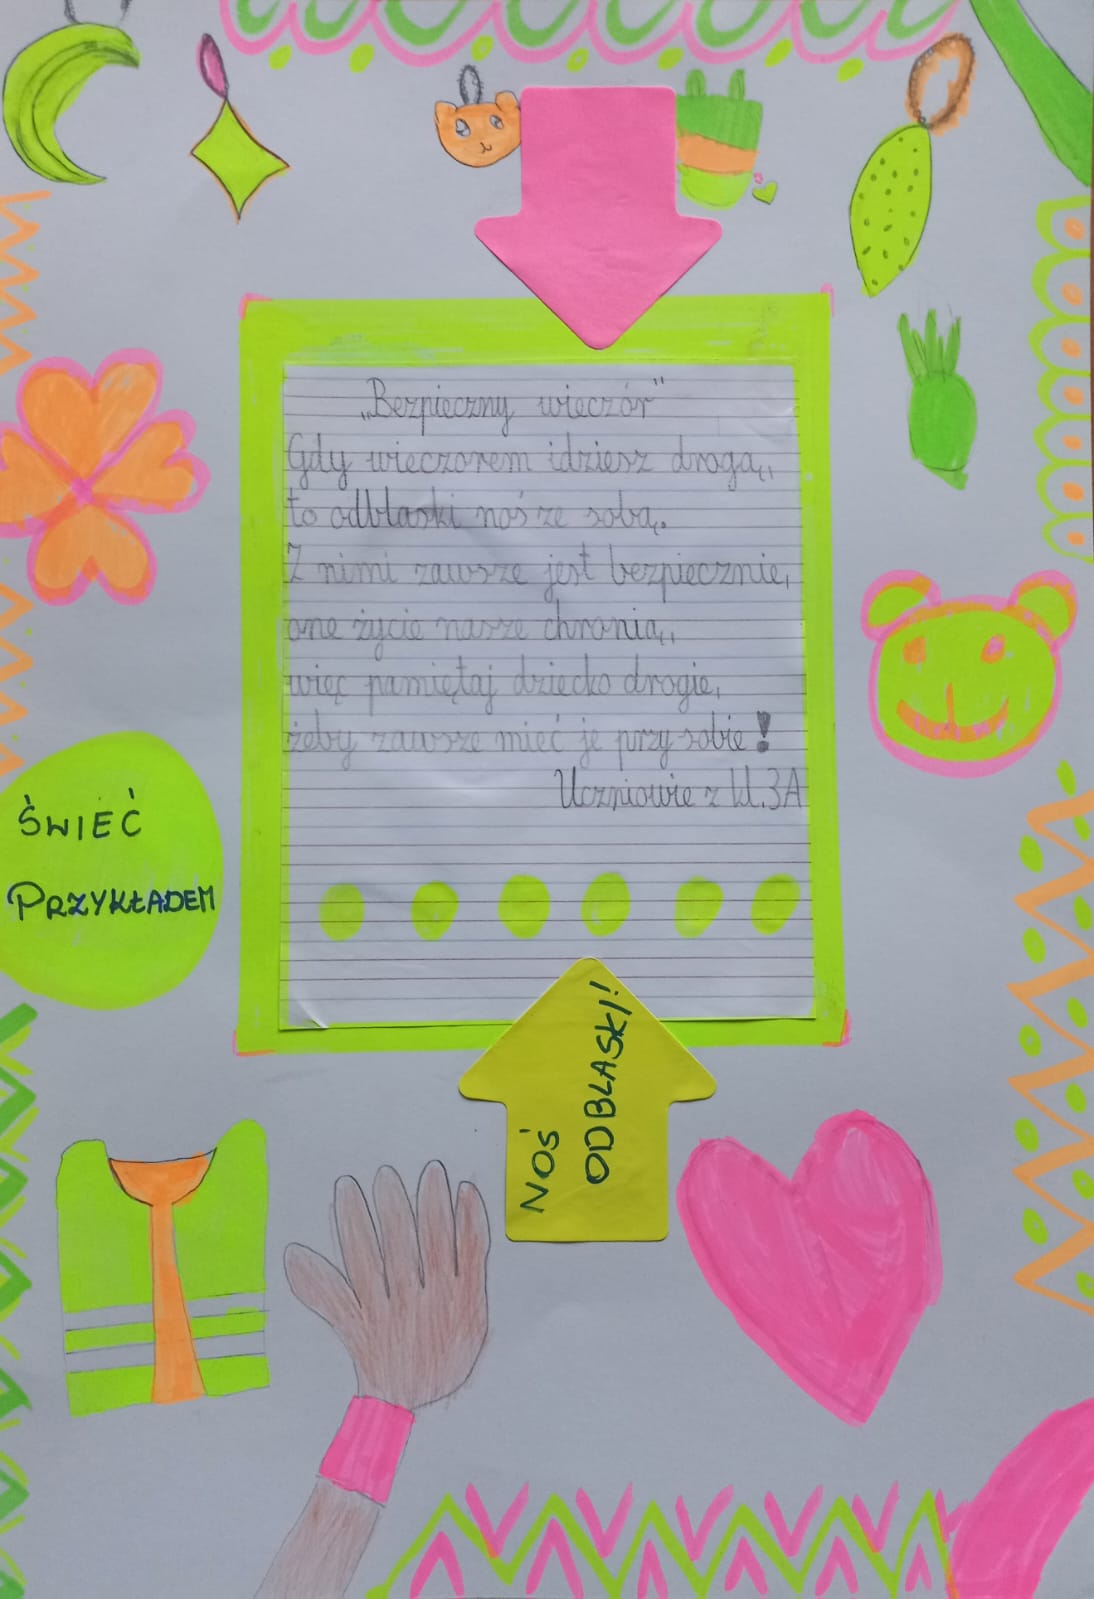 „Bezpieczny wieczór"
Gdy wieczorem idziesz drogą,
to odblaski noś ze sobą.
Z nimi zawsze jest bezpiecznie,
one życie nasze chronią,
więc pamiętaj dziecko drogie,
żeby zawsze mieć je przy sobie!
Uczniowie z kl.3A
ŚWIEĆ
PRZYKŁADEM
NOŚ
ODBLASKI!